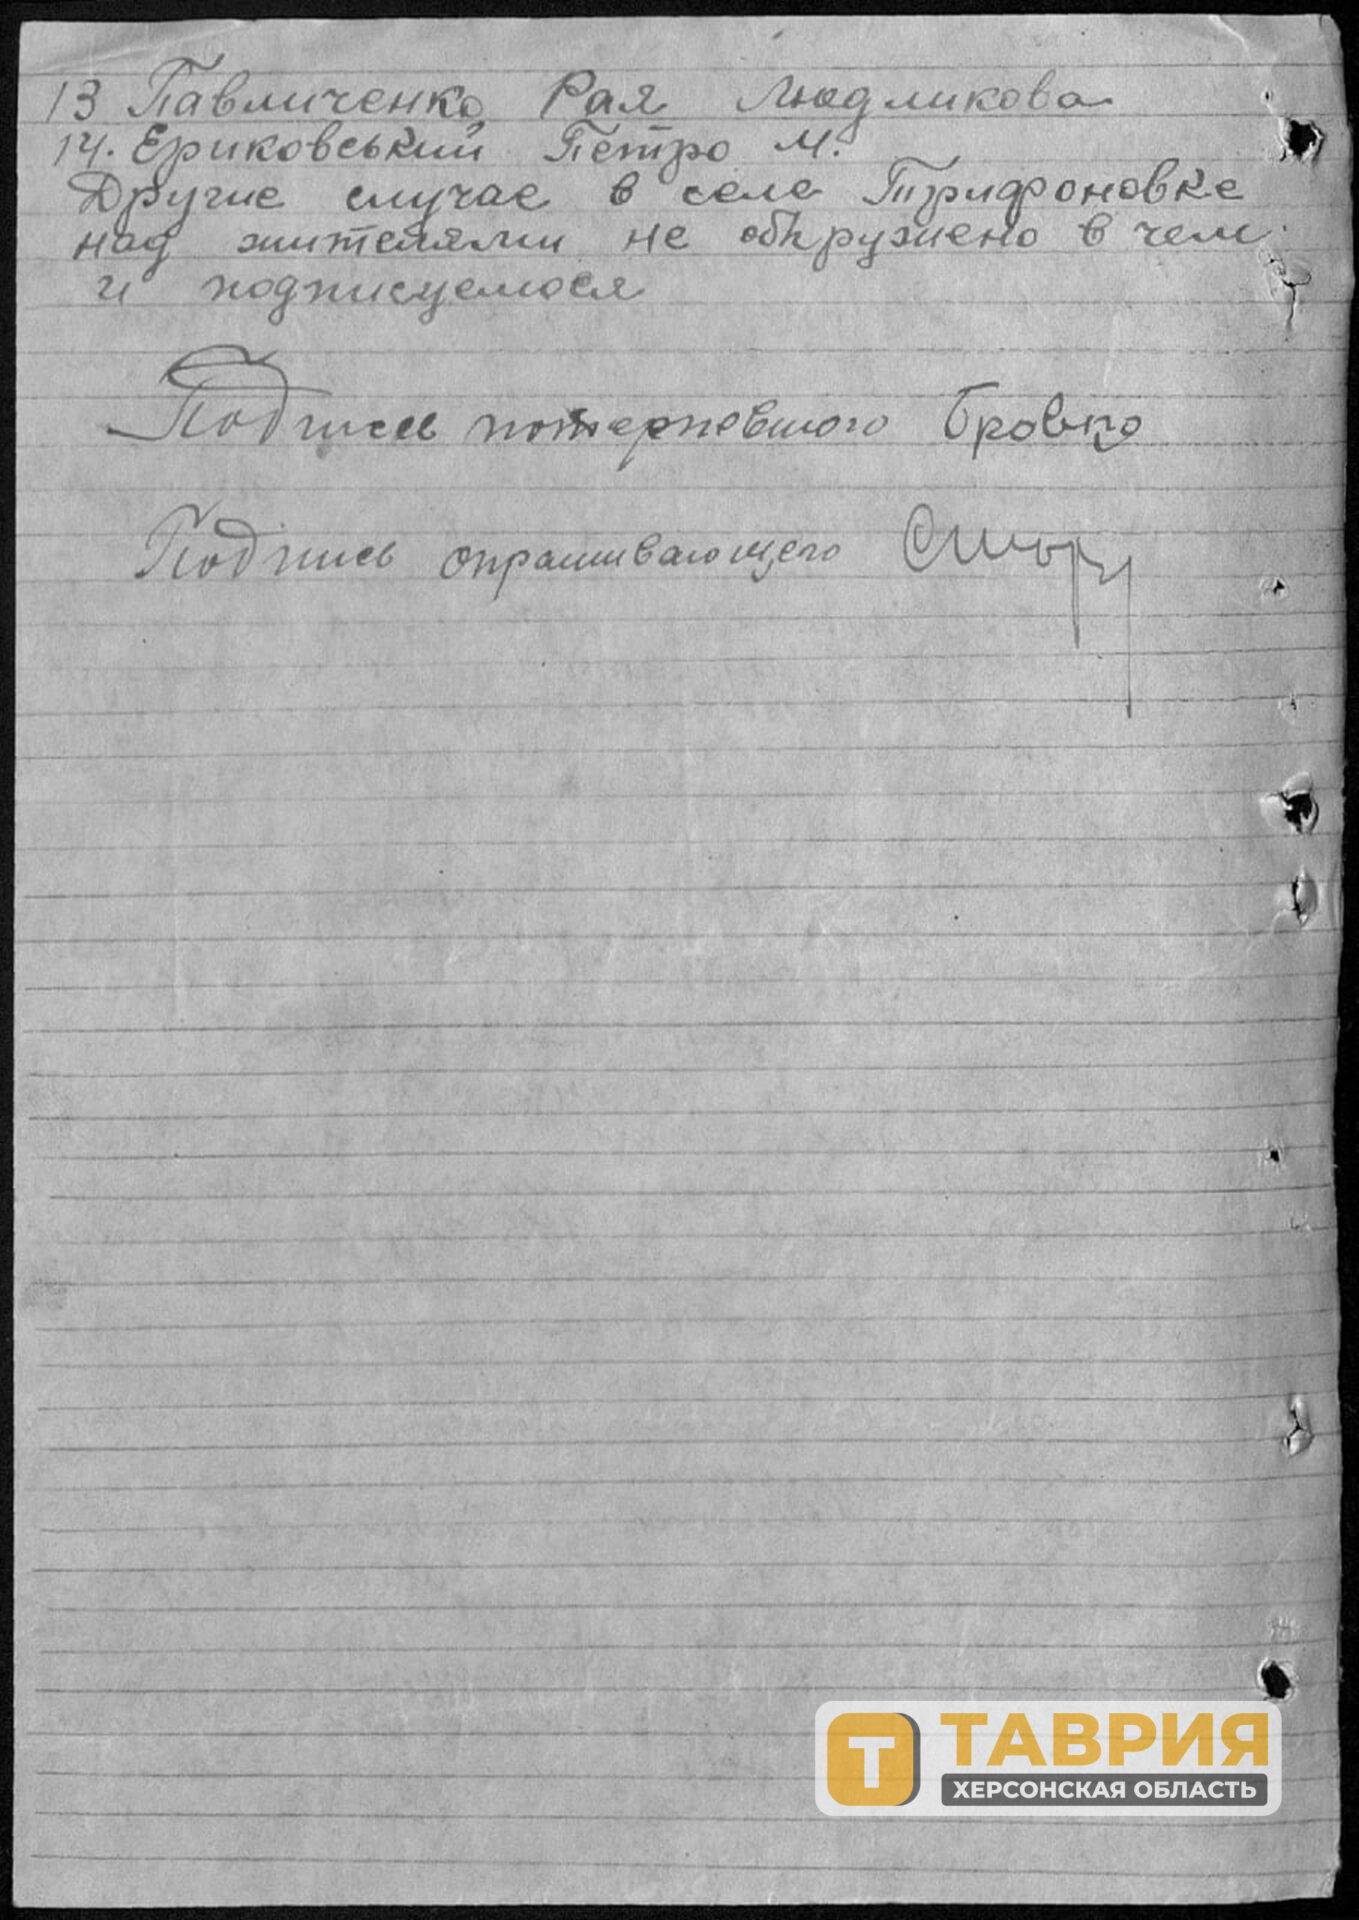 13 Павличенко Рая Людликова
14. Ериковський Петро М.
Другие случае в селе Трифоновке
над жителями не обкружено в чем
и подписуемося
Подпись потерпевшого Бровко
Подпись опрашивающего
Т ТАВРИЯ
ХЕРСОНСКАЯ ОБЛАСТЬ